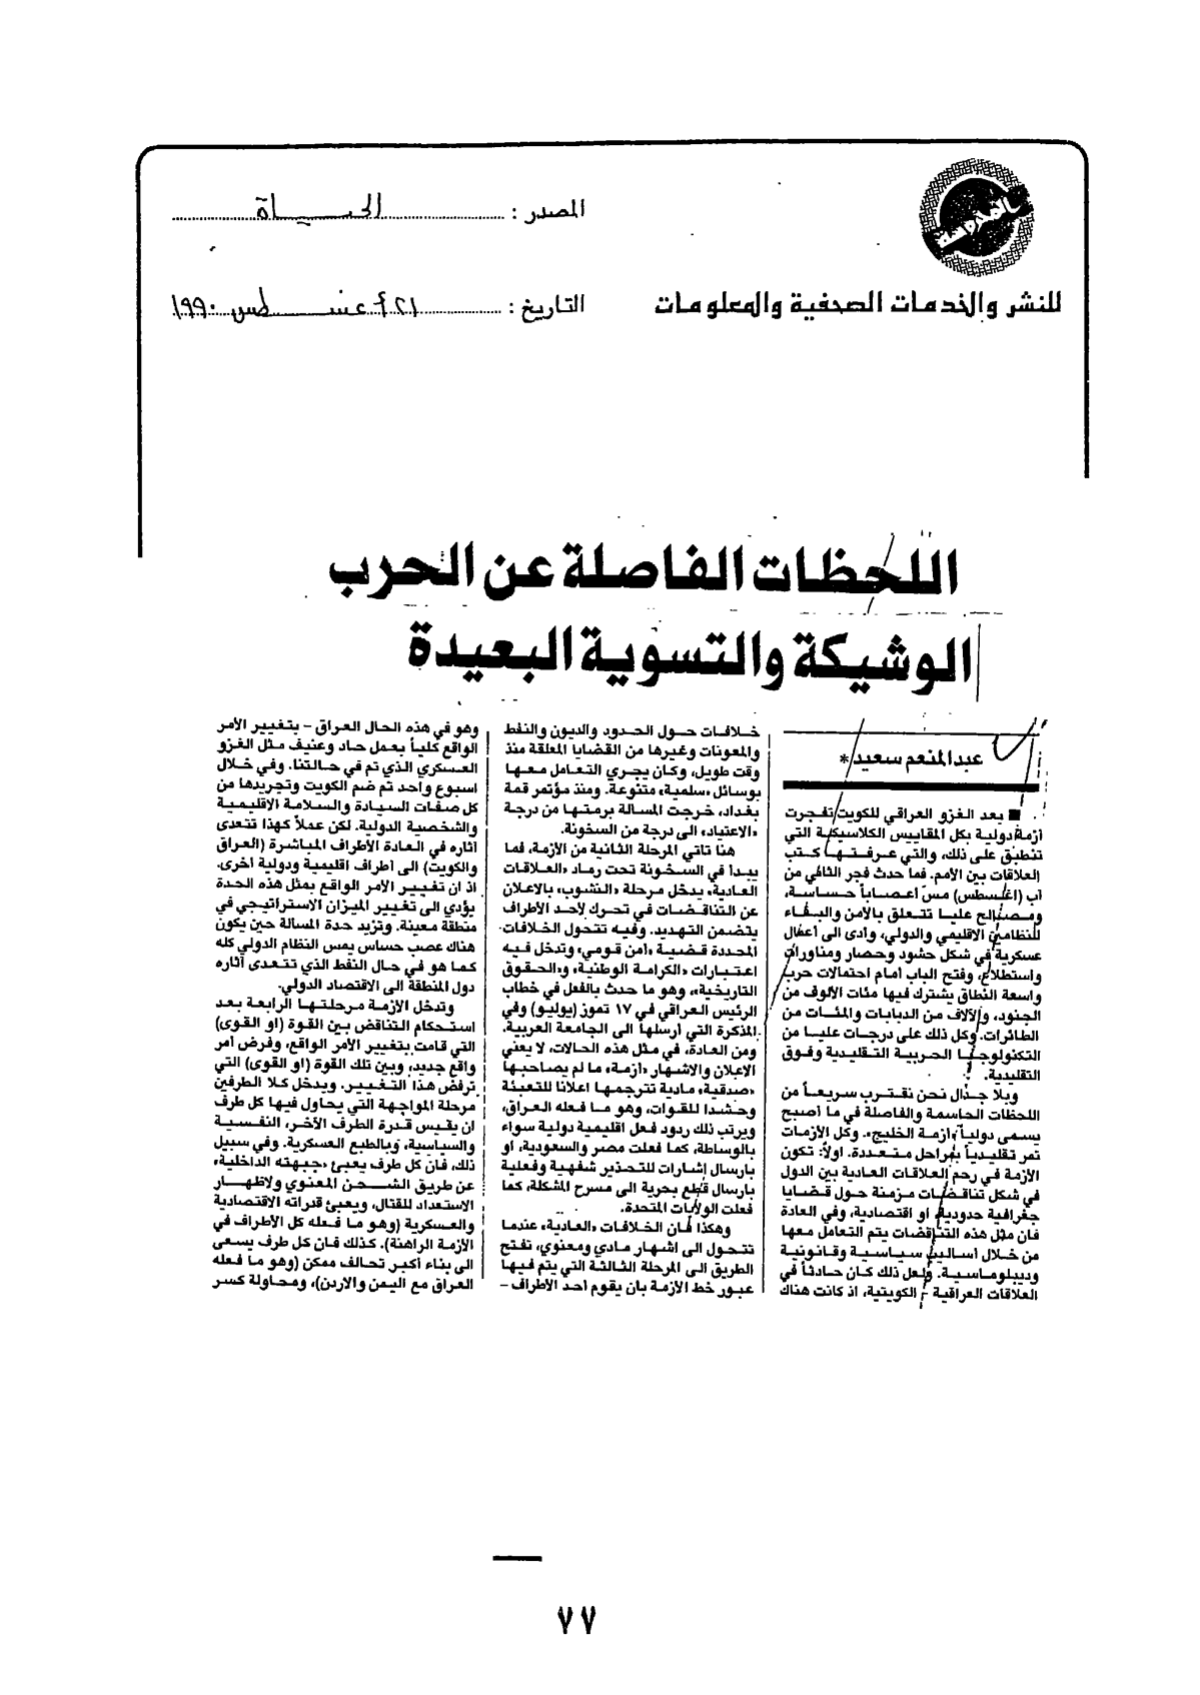 المصدر : الحيـــاة
للنشر والخدمات الصحفية والمعلومات
التاريخ : ٢١ أغسطس ١٩٩٠
اللحظات الفاصلة عن الحرب
الوشيكة والتسوية البعيدة
عبدالمنعم سعيد *
■ بعد الغزو العراقي للكويت تفجرت
ازمة دولية بكل المقاييس الكلاسيكية التي
تنطبق على ذلك، والتي عرفتها كتب
العلاقات بين الأمم. فما حدث فجر الثاني من
آب (اغسطس) مس أعصاباً حساسة،
ومصالح عليا تتعلق بالأمن والبقاء
للنظامين الاقليمي والدولي، وادى الى أعمال
عسكرية في شكل حشود وحصار ومناورات
واستطلاع، وفتح الباب أمام احتمالات حرب
واسعة النطاق يشترك فيها مئات الألوف من
الجنود، والآلاف من الدبابات والمئات من
الطائرات. وكل ذلك على درجات عليا من
التكنولوجيا الحربية التقليدية وفوق
التقليدية.
وبلا جدال نحن نقترب سريعاً من
اللحظات الحاسمة والفاصلة في ما أصبح
يسمى دولياً «أزمة الخليج». وكل الازمات
تمر تقليدياً بمراحل متعددة. اولاً: تكون
الأزمة في رحم العلاقات العادية بين الدول
في شكل تناقضات مزمنة حول قضايا
جغرافية حدودية او اقتصادية، وفي العادة
فان مثل هذه التناقضات يتم التعامل معها
من خلال أساليب سياسية وقانونية
وديبلوماسية. ولعل ذلك كان حادثاً في
العلاقات العراقية - الكويتية، اذ كانت هناك
خلافات حول الحدود والديون والنفط
والمعونات وغيرها من القضايا المعلقة منذ
وقت طويل، وكان يجري التعامل معها
بوسائل «سلمية» متنوعة. ومنذ مؤتمر قمة
بغداد، خرجت المسالة برمتها من درجة
«الاعتياد» الى درجة من السخونة.
هنا تاتي المرحلة الثانية من الأزمة، فما
يبدأ في السخونة تحت رماد «العلاقات
العادية» يدخل مرحلة «النشوب» بالاعلان
عن التناقضات في تحرك لأحد الأطراف
يتضمن التهديد. وفيه تتحول الخلافات
المحددة قضيـة «امن قومي» وتدخل فيه
اعتبارات «الكرامة الوطنية» و«الحقوق
التاريخية»، وهو ما حدث بالفعل في خطاب
الرئيس العراقي في ١٧ تموز (يوليو) وفي
المذكرة التي أرسلها الى الجامعة العربية.
ومن العادة، في مثل هذه الحالات، لا يعني
الاعلان والاشهار «أزمة» ما لم يصاحبها
«صدقية» مادية تترجمها اعلانا للتعبئة
وحشدا للقوات، وهو ما فعله العراق،
ويرتب ذلك ردود فعل اقليمية دولية سواء
بالوساطة، كما فعلت مصر والسعودية، أو
بارسال إشارات للتحذير شفهية وفعلية
بارسال قطع بحرية الى مسرح المشكلة، كما
فعلت الولايات المتحدة.
وهكذا فان الخلافات «العادية» عندما
تتحول الى اشهار مادي ومعنوي، تفتح
الطريق الى المرحلة الثالثة التي يتم فيها
عبور خط الازمة بان يقوم احد الاطراف -
وهو في هذه الحال العراق - بتغيير الأمر
الواقع كلياً بعمل حاد وعنيف مثل الغزو
العسكري الذي تم في حالتنا. وفي خلال
اسبوع واحد تم ضم الكويت وتجريدها من
كل صفات السيادة والسلامة الاقليمية
والشخصية الدولية. لكن عملاً كهذا تتعدى
اثاره في العادة الأطراف المباشرة (العراق
والكويت) الى أطراف اقليمية ودولية اخرى.
اذ ان تغيير الامر الواقع بمثل هذه الحدة
يؤدي الى تغيير الميزان الاستراتيجي في
منطقة معينة. وتزيد حدة المسالة حين يكون
هناك عصب حساس يمس النظام الدولي كله
كما هو في حال النفط الذي تتعدى آثاره
دول المنطقة الى الاقتصاد الدولي.
وتدخل الازمة مرحلتها الرابعة بعد
استحكام التناقض بين القوة (او القوى)
التي قامت بتغيير الأمر الواقع، وفرض امر
واقع جديد، وبين تلك القوة (او القوى) التي
ترفض هذا التغيير. ويدخل كلا الطرفين
مرحلة المواجهة التي يحاول فيها كل طرف
ان يقيس قدرة الطرف الآخر، النفسية
والسياسية، وبالطبع العسكرية. وفي سبيل
ذلك، فان كل طرف يعبئ «جبهته الداخلية»
عن طريق الشحن المعنوي ولاظهار
الاستعداد للقتال، ويعبئ قدراته الاقتصادية
والعسكرية (وهو ما فعله كل الأطراف في
الأزمة الراهنة). كذلك فان كل طرف يسعى
الى بناء أكبر تحالف ممكن (وهو ما فعله
العراق مع اليمن والاردن)، ومحاولة كسر
٧٧